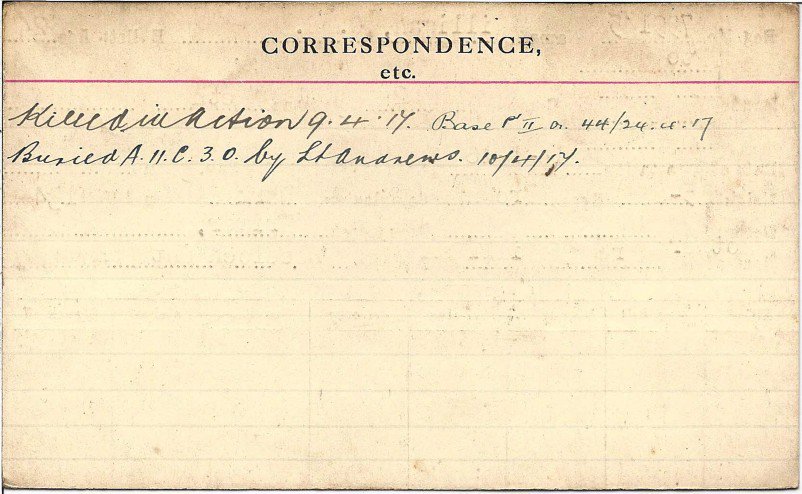 CORRESPONDENCE,
etc.
Killed in Action 9.4.17. Base Pt II o. 44/24.4.17
Buried A.11.C.3.0. by Lt Andrews. 10/4/17.